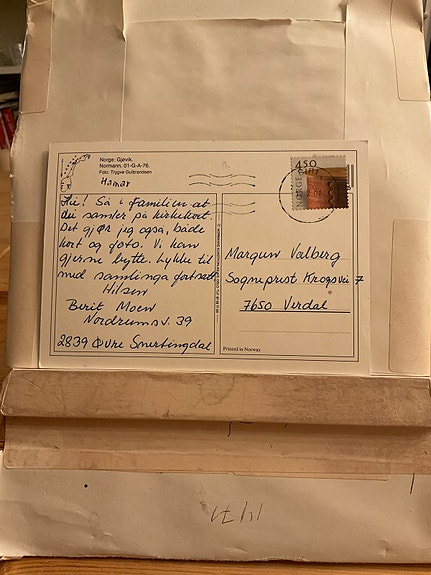 Norge: Gjøvik.
Normann. 01-G-A-76.
Foto: Trygve Gulbrandsen
Hamar
Hei! Så i familien at
du samler på kirkekort.
Det gjør jeg også, både
kort og foto. Vi kan
gjerne bytte. Lykke til
med samlinga fortsatt.
Hilsen
Berit Moen
Nordrumsv. 39
2839 Øvre Snertingdal
NORGE
450
Margunn Valberg
Sogneprest Krogsvei 7
7650 Verdal
Printed in Norway